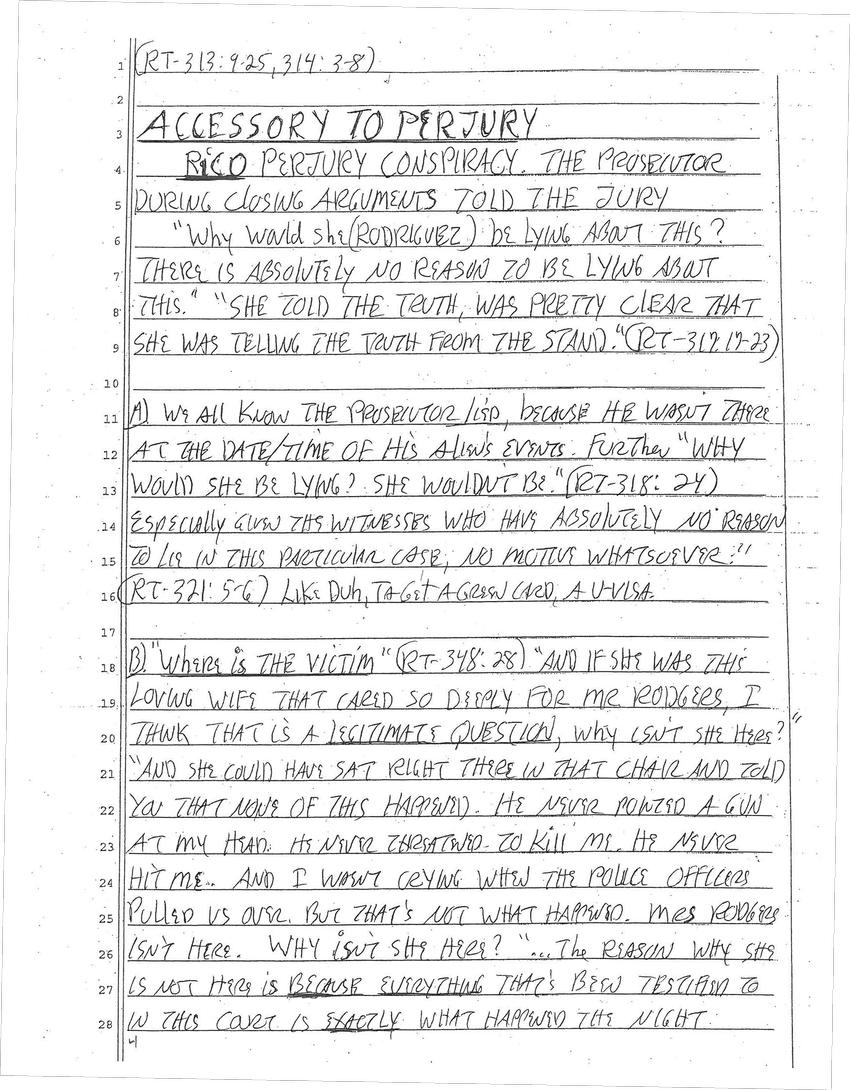 1 (RT-313:9-25, 314:3-8)
2
3 ACCESSORY TO PERJURY
4 RICO PERJURY CONSPIRACY. THE PROSECUTOR
5 DURING CLOSING ARGUMENTS TOLD THE JURY
6 "Why Would she (RODRIGUEZ) be LYING ABOUT THIS?
7 THERE IS ABSOLUTELY NO REASON TO BE LYING ABOUT
8 THIS." "SHE TOLD THE TRUTH, WAS PRETTY CLEAR THAT
9 SHE WAS TELLING THE TRUTH FROM THE STAND."(RT-317:17-23)
10
11 A) WE All KNOW THE PROSECUTOR LIED, because HE WASN'T THERE
12 AT THE DATE/TIME OF HIS ALIEN'S EVENTS. Further "WHY
13 WOULD SHE BE LYING? SHE WOULDN'T BE."(RT-318:24)
14 ESPECIALLY GIVEN THE WITNESSES WHO HAVE ABSOLUTELY NO REASON
15 TO LIE IN THIS PARTICULAR CASE, NO MOTIVE WHATSOEVER."
16 (RT-321:5-6) LIKE DUh, TO GET A GREEN CARD, A U-VISA.
17
18 B) "WHERE is THE VICTIM" (RT-348:28) "AND IF SHE WAS THIS
19 LOVING WIFE THAT CARED SO DEEPLY FOR MR RODGERS, I
20 THINK THAT IS A LEGITIMATE QUESTION, Why ISN'T SHE HERE?"
21 "AND SHE COULD HAVE SAT RIGHT THERE IN THAT CHAIR AND TOLD
22 YOU THAT NONE OF THIS HAPPENED. HE NEVER POINTED A GUN
23 AT MY HEAD. HE NEVER THREATENED TO Kill ME. HE NEVER
24 HIT ME.. AND I WASN'T CRYING WHEN THE POLICE OFFICERS
25 PULLED US OVER. BUT THAT'S NOT WHAT HAPPENED. MRS RODGERS
26 ISN'T HERE. WHY iSN'T SHE HERE? "...The REASON WHY SHE
27 IS NOT HERE is BECAUSE EVERYTHING THAT'S BEEN TESTIFIED TO
28 IN THIS COURT IS EXACTLY WHAT HAPPENED THE NIGHT
4